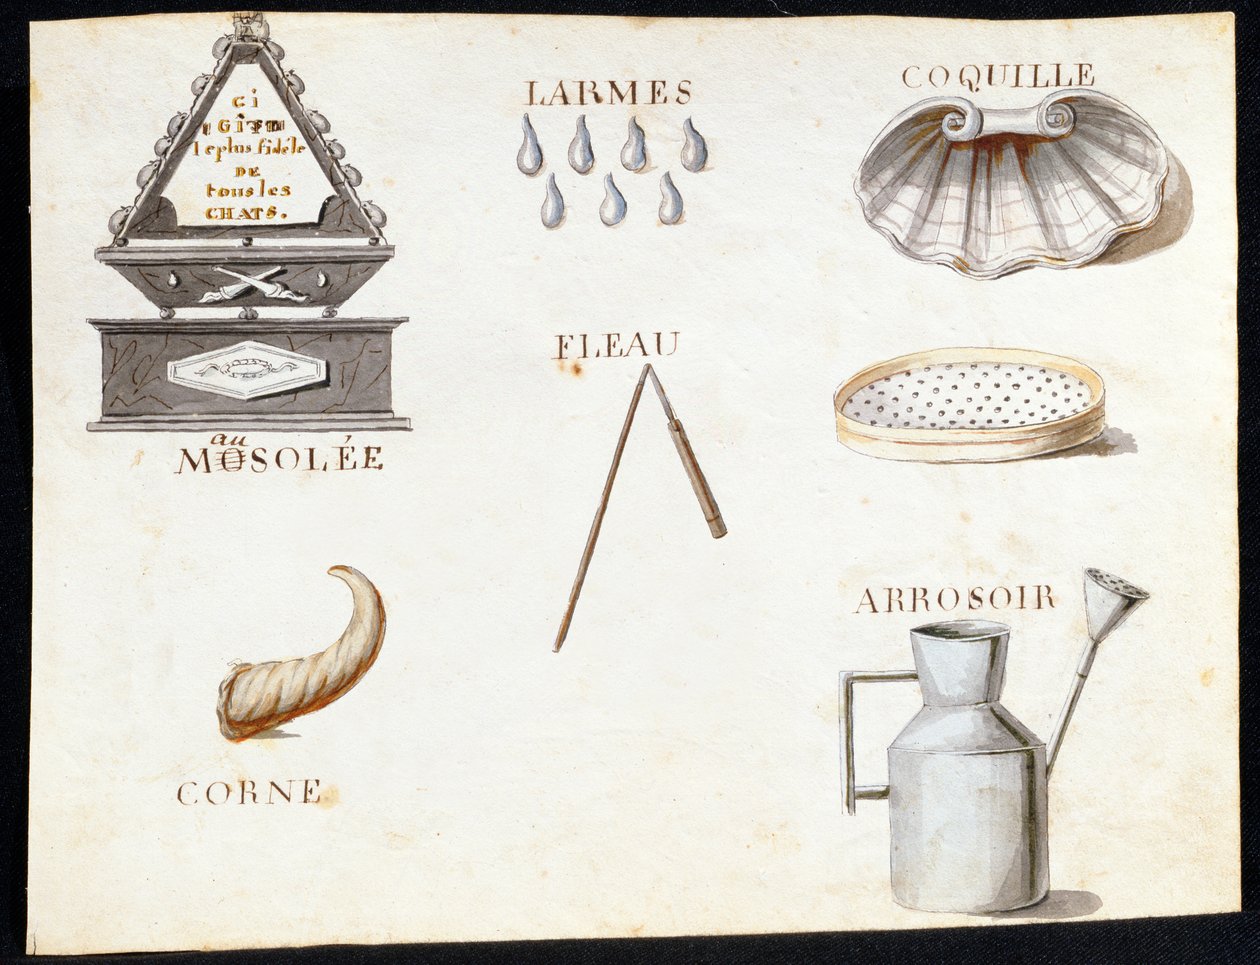 CI
GIT
le plus fidéle
DE
tous les
CHATS.
au
MOSOLÉE
CORNE
LARMES
FLEAU
COQUILLE
ARROSOIR